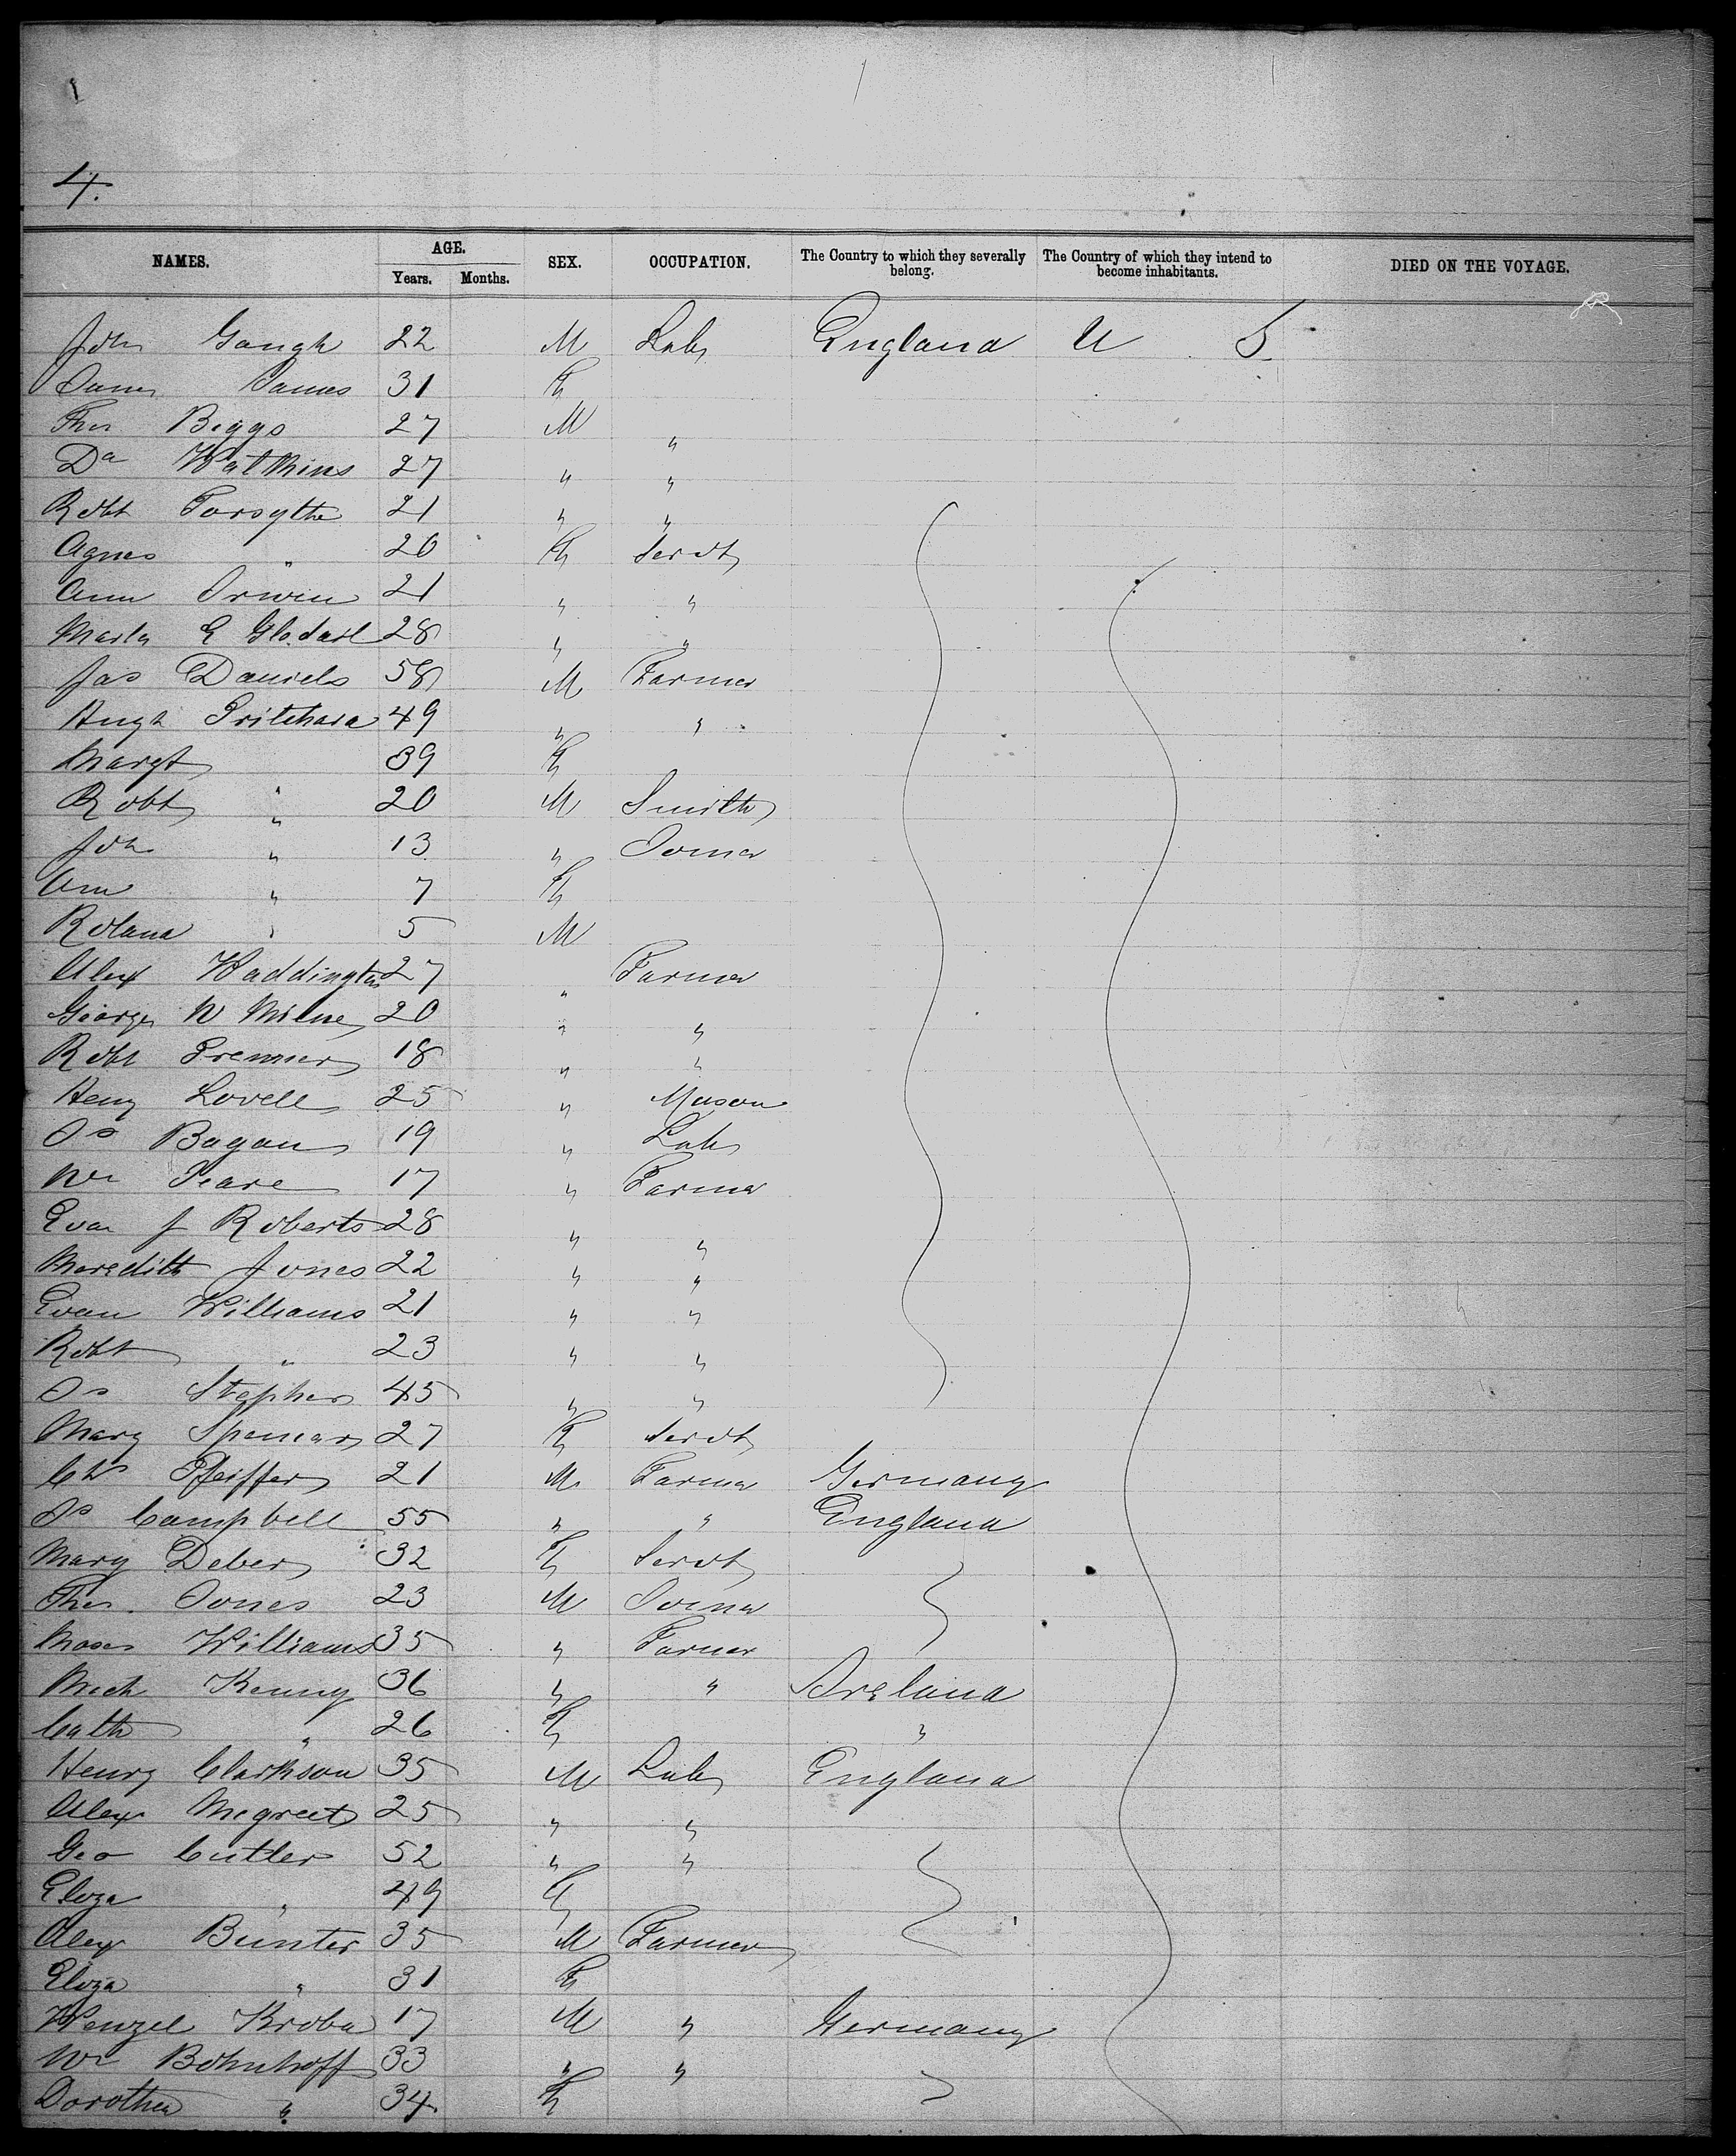 4.
NAMES. AGE. SEX. OCCUPATION. The Country to which they severally belong. The Country of which they intend to become inhabitants. DIED ON THE VOYAGE.
Years. Months.
Jdn Gough 22 M Lab England U S
James 31 F
Thos Biggs 27 M "
Da Watkins 27 " "
Robt Forsythe 21 " "
Agnes " 20 F Servt
Ann Irwin 21 " "
E 28 " "
Jas Daniels 58 M Farmer
Hugh Pritchard 49 " "
Margt " 39 F
Robt " 20 M Smith
Joh " 13 " Joiner
Ann " 7 F
Roland " 5 M
Alex Waddington 27 " Farmer
George W Milne 20 " "
Robt 18 " "
Henry Lovell 25 " Mason
Js Bagan 19 " Lab
Wm 17 " Farmer
Evan J Roberts 28 " "
Meredith Jones 22 " "
Evan Williams 21 " "
Robt " 23 " "
Js Stephens 45 " "
Mary Spencer 27 F Servt
Chs Pfeiffer 21 M Farmer Germany
Js Campbell 55 " " England
Mary Deber 32 F Servt
Thos. Jones 23 M Joiner
Moses Williams 35 " Farmer
Mich Kenny 36 " " Ireland
Cath " 26 F "
Henry Clarkson 35 M Lab England
Alex 25 " "
Geo Cutler 52 " "
Eliza " 49 F
Alex Bunter 35 M Farmer
Eliza " 31 F
Wenzel Kroba 17 M " Germany
Wm Bohnhoff 33 " "
Dorothea " 34 F